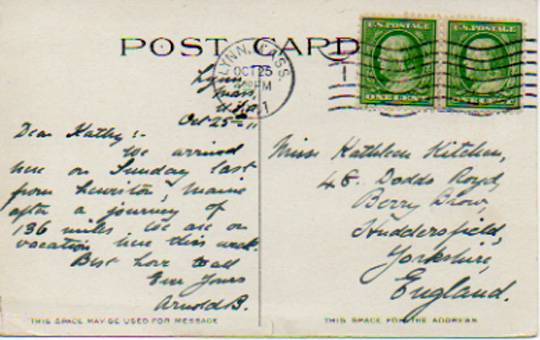 POST CARD
LYNN, MASS.
OCT 25
PM
U.S. POSTAGE
ONE CENT
U.S. POSTAGE
Lynn
Mass,
U.S.A.
Oct 25th 11
Dear Kathy :-
We arrived
here on Sunday last
from Lewiston, Maine
after a journey of
136 miles. We are on
vacation here this week.
Best Love to all
Ever Yours
Arnold B.
THIS SPACE MAY BE USED FOR MESSAGE
Miss Kathleen Kitchen,
48. Dodds Royd,
Berry Brow,
Huddersfield,
Yorkshire,
England.
THIS SPACE FOR THE ADDRESS